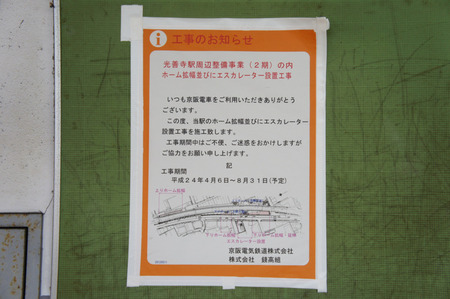 i 工事のお知らせ
光善寺駅周辺整備事業（２期）の内
ホーム拡幅並びにエスカレーター設置工事
いつも京阪電車をご利用いただきありがとう
ございます。
この度、当駅のホーム拡幅並びにエスカレーター
設置工事を施工致します。
工事期間中はご不便、ご迷惑をおかけしますが
ご協力をお願い申し上げます。
記
工事期間
平成２４年４月６日～８月３１日(予定)
上りホーム拡幅
下りホーム拡幅
エスカレーター設置
京阪電気鉄道株式会社
株式会社　錢高組